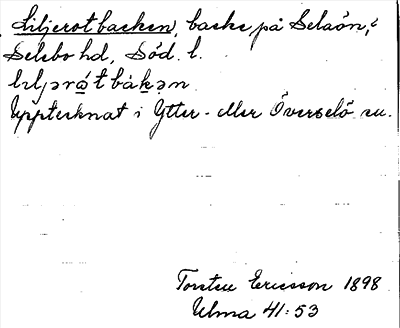 Liljerotbacken, backe på Selaön, i
Selebo hd, Söd. l.
lɪljərátbákən
Upptecknat i Ytter- eller Överselö sn.
Torsten Ericsson 1898
Ulma 41:53